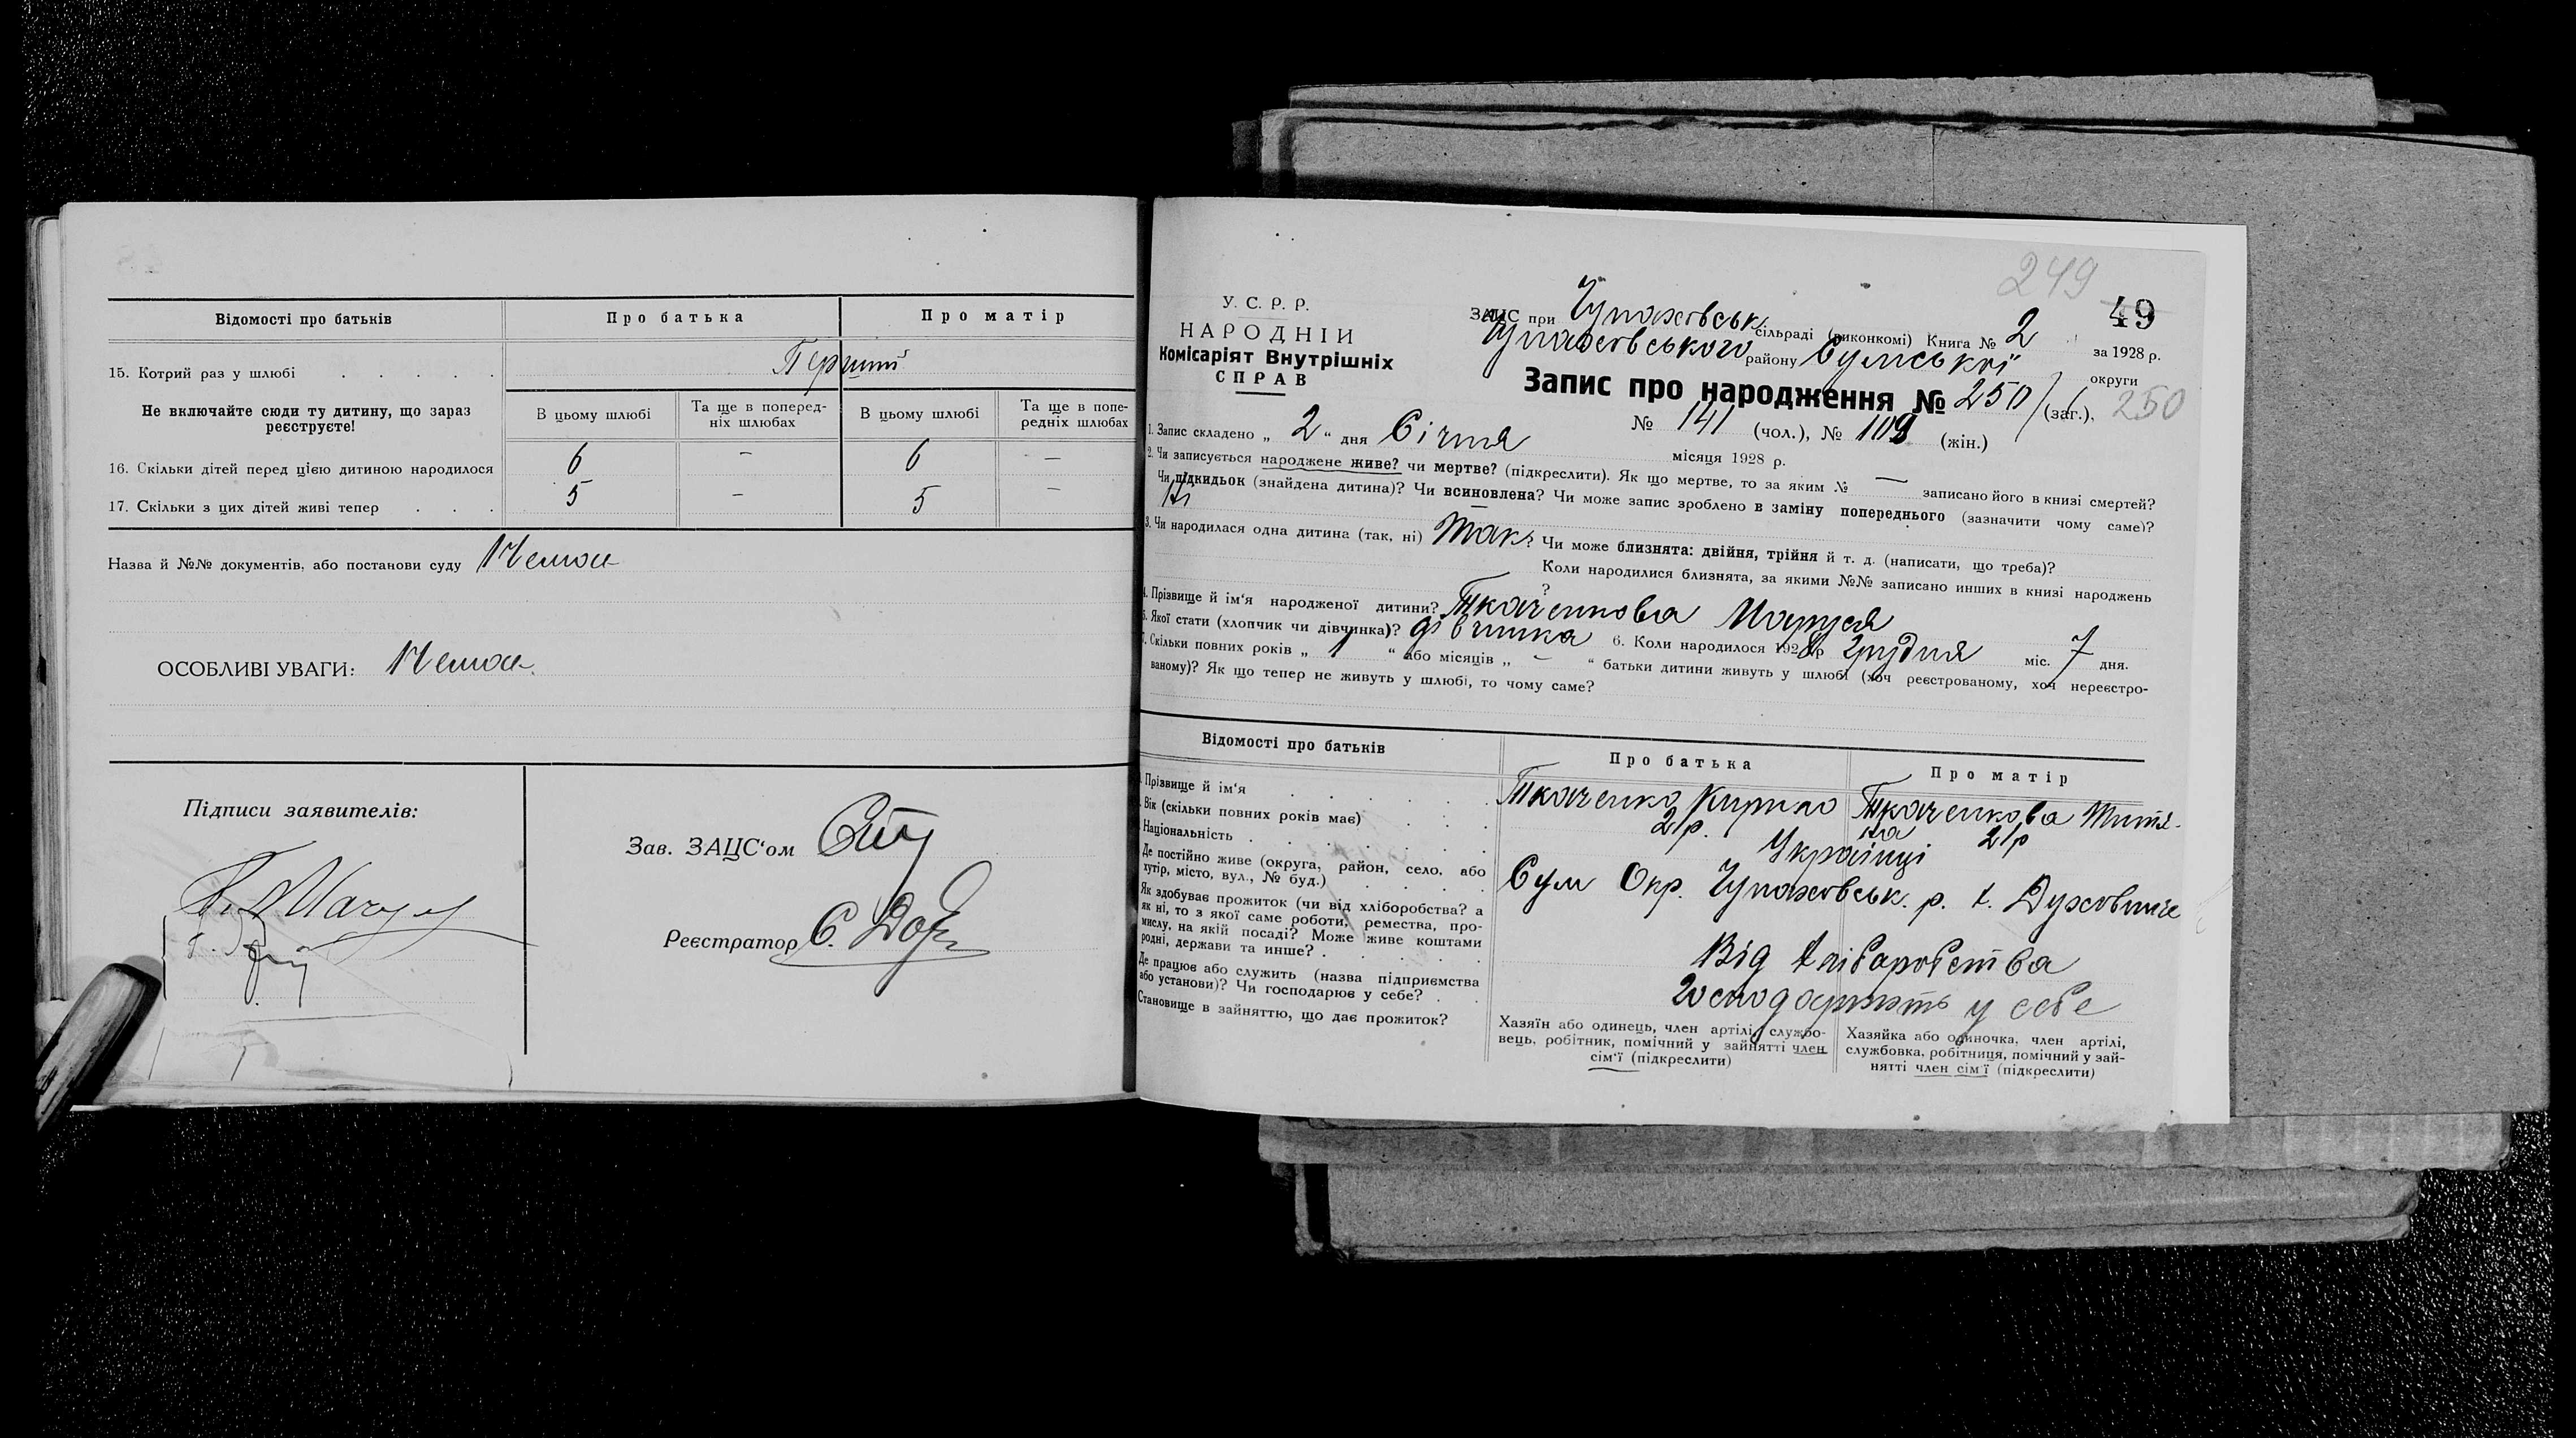 Відомості про батьків
Про батька
Про матір
15. Котрий раз у шлюбі
Перший
Не включайте сюди ту дитину, що зараз реєструєте!
В цьому шлюбі
Та ще в поперед-
ніх шлюбах
В цьому шлюбі
Та ще в попе-
редніх шлюбах
16. Скільки дітей перед цією дитиною народилося 6 — 6 —
17. Скільки з цих дітей живі тепер 5 — 5 —
Назва й №№ документів, або постанови суду Нема
ОСОБЛИВІ УВАГИ: Нема
Підписи заявителів:
Зав. ЗАЦС‘ом
Реєстратор С.
249
49
У. С. Р. Р.
НАРОДНІЙ
Комісаріят Внутрішніх
СПРАВ
ЗАЦС при Чупаховськ сільраді (виконкомі) Книга № 2 за 1928 р.
Чупаховського району Сумської округи
Запис про народження № 250 (заг.), 250
№ 141 (чол.), № 109 (жін.)
1. Запис складено „ 2 “ дня Січня місяця 1928 р.
2. Чи записується народжене живе? чи мертве? (підкреслити). Як що мертве, то за яким № — записано його в книзі смертей?
Чи підкидьок (знайдена дитина)? Чи всиновлена? Чи може запис зроблено в заміну попереднього (зазначити чому саме)?
Ні
3. Чи народилася одна дитина (так, ні) Так? Чи може близнята: двійня, трійня й т. д. (написати, що треба)?
Коли народилися близнята, за якими №№ записано инших в книзі народжень
?
4. Прізвище й ім‘я народженої дитини? Ткаченкова Маруся
5. Якої стати (хлопчик чи дівчинка)? дівчинка 6. Коли народилося 1928 р Грудня міс. 7 дня.
7. Скільки повних років „ 1 “ або місяців „ – “ батьки дитини живуть у шлюбі (хоч реєстрованому, хоч нереєстро-
ваному)? Як що тепер не живуть у шлюбі, то чому саме?
Відомості про батьків
Про батька
Про матір
Прізвище й ім‘я
Ткаченко Кирило
Ткаченкова
Вік (скільки повних років має)
21р.
21р
Національність
Українці
Де постійно живе (округа, район, село, або
хутір, місто, вул., № буд.)
Сум Окр. Чупаховськ. р.
Як здобуває прожиток (чи від хліборобства? а
як ні, то з якої саме роботи, ремества, про-
мислу, на якій посаді? Може живе коштами
родні, держави та инше?
Від хліборобства
Де працює або служить (назва підприємства
або установи)? Чи господарює у себе?
Господарюють у себе
Становище в зайняттю, що дає прожиток?
Хазяїн або одинець, член артілі, службо-
вець, робітник, помічний у зайнятті член
сім‘ї (підкреслити)
Хазяйка або одиночка, член артілі,
службовка, робітниця, помічний у зай-
нятті член сім‘ї (підкреслити)